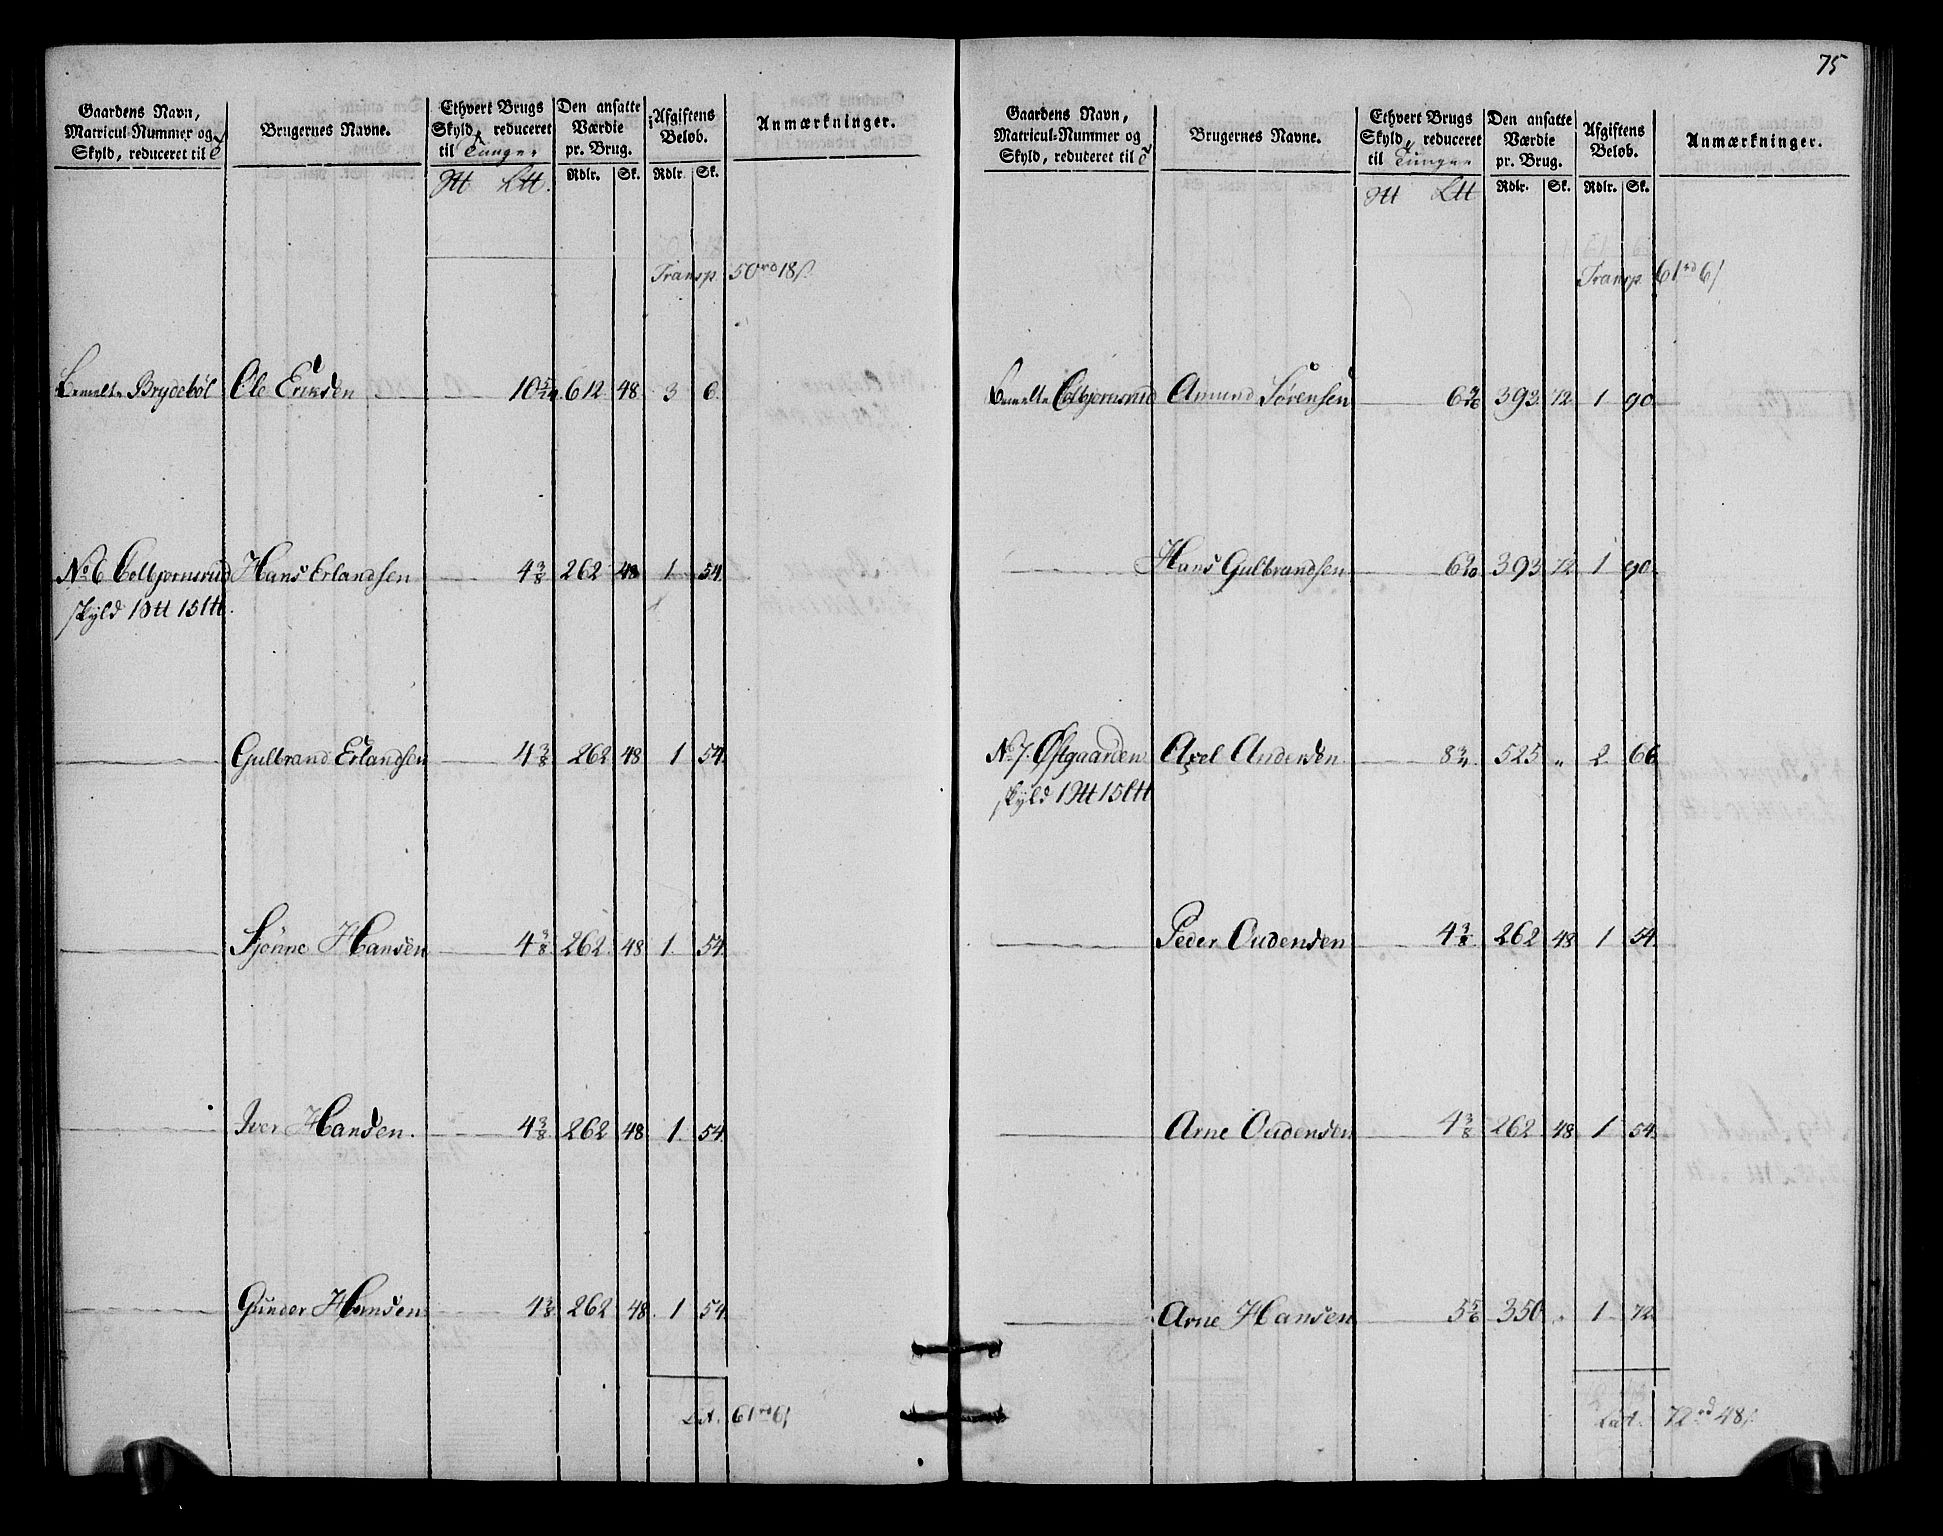 75
Gaardens Navn,
Matricul-Nummer og
Skyld, reduceret til
Brugernes Navne.
Ethvert Brugs
Skyld, reduceret
til Tunge
Den ansatte
Værdie
pr. Brug.
Afgiftens
Beløb.
Anmærkninger.
Rdlr. Sk. Rdlr. Sk.
Transp. 50 rd 18 s.
Brydebøl Ole Eriksen 10 5/24 612 48 3 6
No 6 Colbjørnsrud Hans Erlandsen 4 3/8 262 48 1 54
skyld 15
Gulbrand Erlandsen 4 3/8 262 48 1 54
Sjønne Hansen 4 3/8 262 48 1 54
Iver Hansen 4 3/8 262 48 1 54
Gunder Hansen 4 3/8 262 48 1 54
Lat. 61 rd 6 s
Gaardens Navn,
Matricul-Nummer og
Skyld, reduceret til
Brugernes Navne.
Ethvert Brugs
Skyld, reduceret
til Tunge
Den ansatte
Værdie
pr. Brug.
Afgiftens
Beløb.
Anmærkninger.
Rdlr. Sk. Rdlr. Sk.
Transp. 61 rd 6 s
Colbjørnsrud Amund Sørensen 393 72 1 90
Hans Gulbrandsen 393 72 1 90
No 7. Østgaarden Axel Andersen 8 3/4 525 " 2 66
skyld 15
Peder Oudensen 4 3/8 262 48 1 54
Arne Oudensen 4 3/8 262 48 1 54
Arne Hansen 5 5/6 350 " 1 72
Lat. 72 rd 48 s.